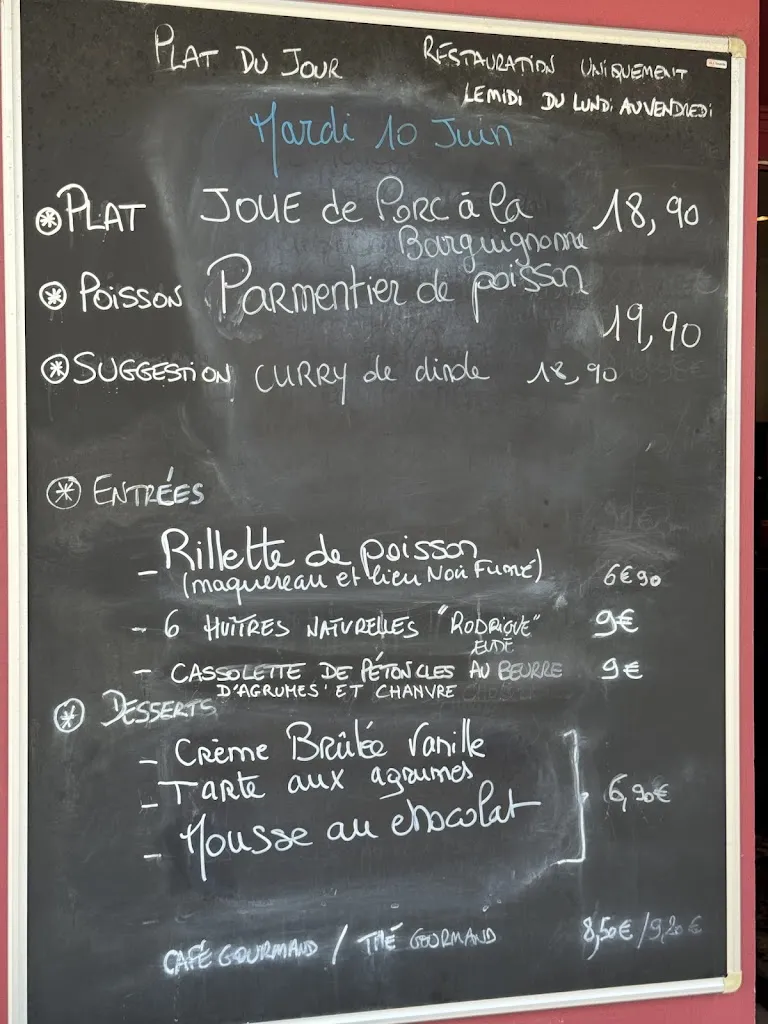 PLAT DU JOUR
RESTAURATION UNIQUEMENT
LE MIDI DU LUNDI AU VENDREDI
Mardi 10 Juin
PLAT JOUE de PORC à la 18,90
Bourguignonne
POISSON Parmentier de poisson
19,90
SUGGESTION CURRY de dinde 18,90
ENTRÉES
- Rillette de poisson
(maquereau et lieu Noir Fumé) 6€90
- 6 HUÎTRES NATURELLES "RODRIGUE" 9€
- CASSOLETTE DE PÉTONCLES AU BEURRE 9€
D'AGRUMES ET CHANVRE
DESSERTS
- Crème Brûlée Vanille
- Tarte aux agrumes
6,90€
- Mousse au chocolat
CAFÉ GOURMAND / THÉ GOURMAND 8,50€ / 9,20€